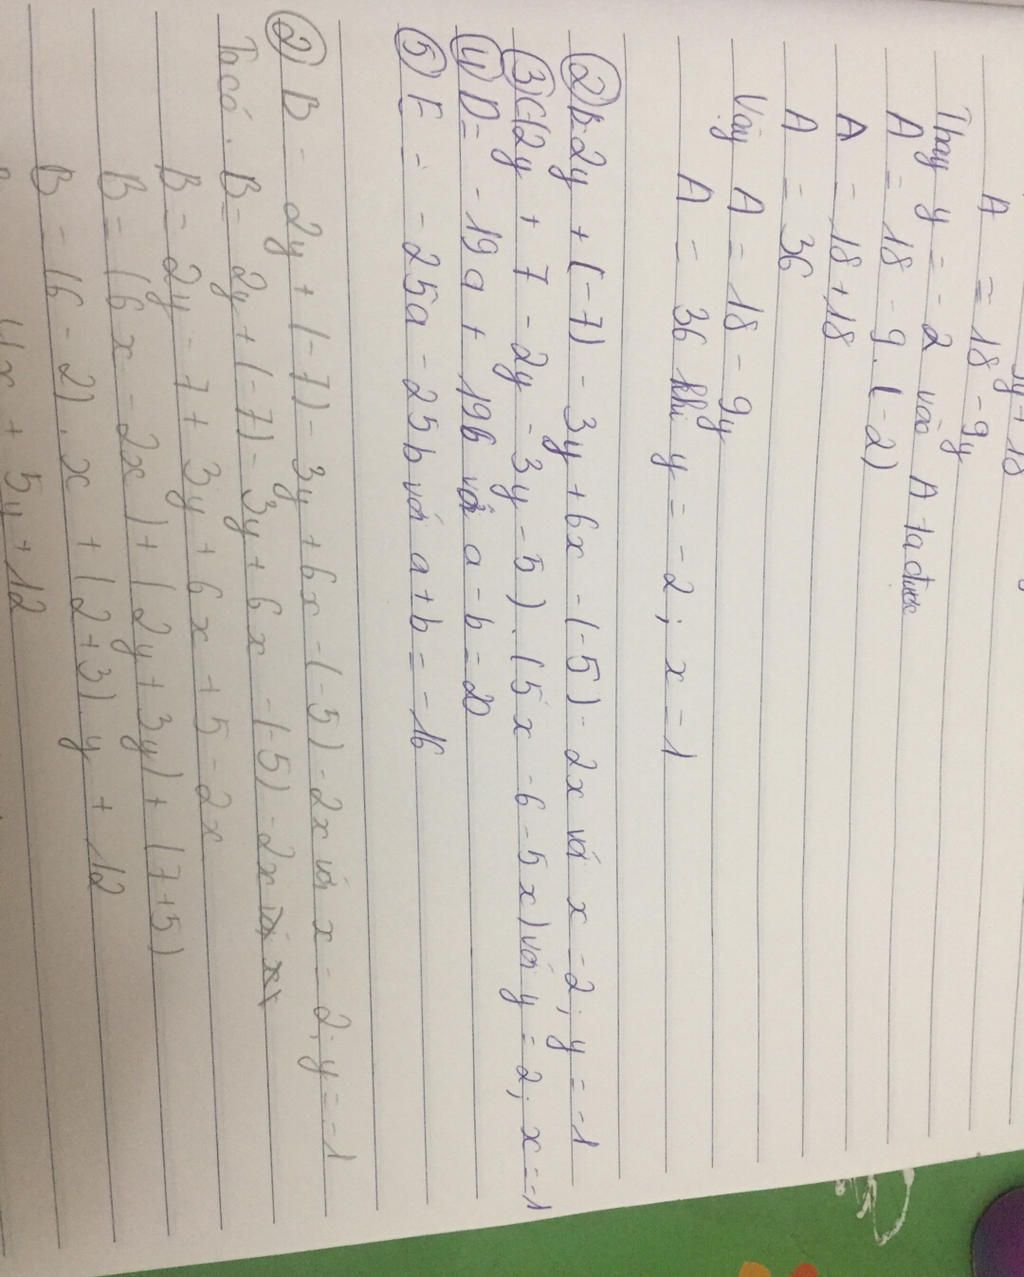 3y + 18
A = 18 - 9y
Thay y = -2 vào A ta được
A = 18 - 9.(-2)
A = 18 + 18
A = 36
Vậy A = 18 - 9y
A = 36 khi y = -2; x = 1
② B = 2y + (-7) - 3y + 6x - (-5) - 2x với x = 2; y = -1
③ C = (2y + 7 - 2y - 3y - 5) . (5x - 6 - 5x) với y = 2; x = -1
④ D = -19a + 19b với a - b = 20
⑤ E = -25a - 25b với a + b = -16
② B = 2y + (-7) - 3y + 6x - (-5) - 2x với x = 2; y = -1
Ta có: B = 2y + (-7) - 3y + 6x - (-5) - 2x
B = 2y - 7 + 3y + 6x + 5 - 2x
B = (6x - 2x) + (2y + 3y) + (7+5)
B = (6 - 2).x + (2+3).y + 12
4x + 5y + 12